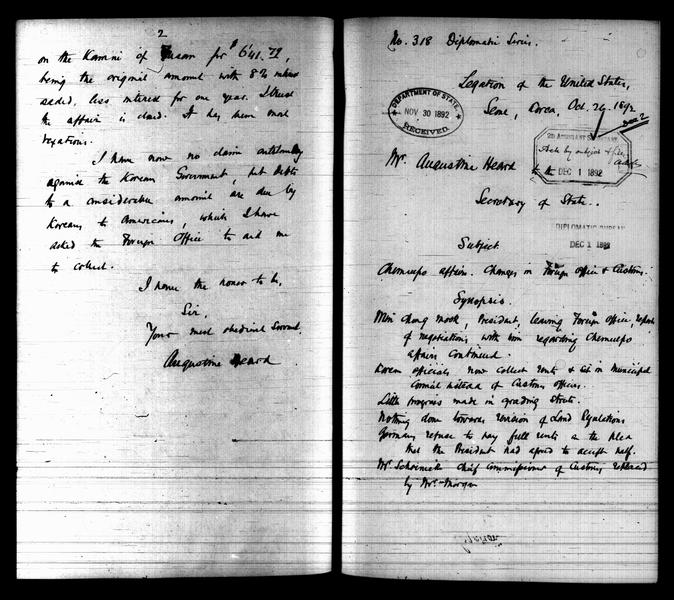 2
on the Kamni of Fusan for $641.72,
being the original amount with 8% interest
added, less interest for one year. I trust
the affair is closed. It has been most
vexatious.
I have now no claim outstanding
against the Korean Government, but debts
to a considerable amount are due by
Koreans to Americans, which I have
asked the Foreign Office to aid me
to collect.
I have the honor to be,
Sir,
Your most obedient Servant,
Augustine Heard
No. 318 Diplomatic Series.
Legation of the United States,
Seoul, Corea, Oct. 29. 1892
DEPARTMENT OF STATE
NOV 30 1892
RECEIVED
2D ASSISTANT SECRETARY
DEC 1 1892
Mr. Augustine Heard
to the
Secretary of State.
DIPLOMATIC BUREAU
DEC 1 1892
Subject
Chemulpo affairs. Changes in Foreign Office & Customs.
Synopsis.
Min Chong Mook, President, leaving Foreign Office, report
of negotiations with him regarding Chemulpo
affairs continued.
Korean officials now collect rents & in Municipal
Council instead of Customs officers.
Little progress made in grading streets.
Nothing done towards revision of Land Regulations
Germans refuse to pay full rents on the plea
that the President had agreed to accept half.
Mr Schoenicke Chief Commissioner of Customs, replaced
by Mr. Morgan